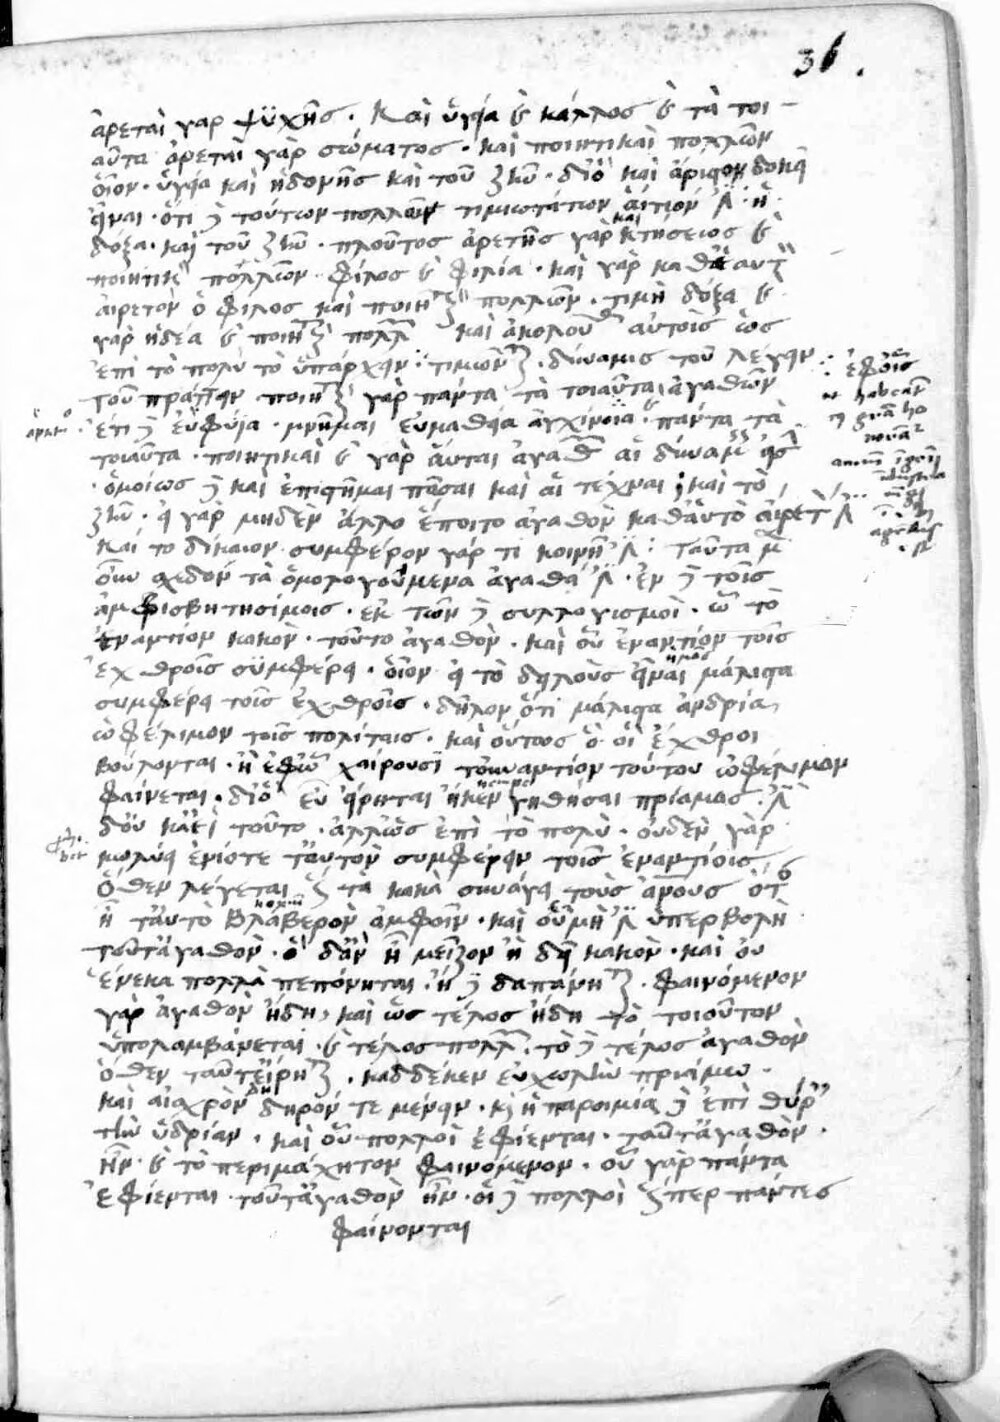 36.
ἀρεταὶ γαρ ψυχῆς. Καὶ ὑγεία καὶ κάλλος καὶ τὰ τοι-
αῦτα ἀρεταὶ γὰρ σώματος. και ποιητικαὶ πολλῶν
οἷον. ὑγεία καὶ ἡδονῆς καὶ τοῦ ζῆν. διὸ καὶ ἄριστον δοκεῖ
εἶναι. ὅτι δύο τούτων πολλῶν τιμιωτάτων αἴτιόν ἐστιν. ἡ
δόξα. καὶ τοῦ ζῆν. πλοῦτος ἀρετῆς γὰρ καὶ κτήσεως καὶ
ποιητικὸν πολλῶν. φίλος καὶ φιλία. καὶ γὰρ καθ' αὑτὸν
αἱρετὸν ὁ φίλος καὶ ποιητικὸν πολλῶν. τιμὴ δόξα καὶ
γὰρ ἡδέα καὶ ποιητικὰ πολλῶν καὶ ἀκολουθεῖ αὐτοῖς ὡς
ἐπὶ τὸ πολὺ τὸ ὑπάρχειν. τιμῶνται. δύναμις τοῦ λέγειν
τοῦ πράττειν. ποιητικὰ γὰρ πάντα τὰ τοιαῦτα ἀγαθῶν
ἔτι δὲ εὐφυΐα. μνῆμαι εὐμαθεία ἀγχίνοια. πάντα τὰ
τοιαῦτα. ποιητικαὶ γὰρ αὗται ἀγαθῶν αἱ δυνάμεις εἰσίν
. ὁμοίως δὲ και ἐπιστῆμαι πᾶσαι καὶ αἱ τέχναι. καὶ τὸ
ζῆν. εἰ γαρ μηδὲν ἄλλο ἕποιτο ἀγαθὸν καθ' αὑτὸ αἱρετόν ἐστι
καὶ το δίκαιον. συμφέρον γάρ τι κοινῇ ἐστι. ταῦτα μὲν
οὖν σχεδὸν τὰ ὁμολογούμενα ἀγαθά ἐστι. ἐν δὲ τοῖς
ἀμφισβητησίμοις. ἐκ τῶνδε συλλογισμοὶ. ᾧ τὸ
ἐναντίον κακὸν. τοῦτο ἀγαθὸν. καὶ οὗ ἐναντίον τοῖς
ἐχθροῖς συμφέρει. οἷον εἰ τὸ δειλοὺς εἶναι μάλιστα
συμφέρει τοῖς ἐχθροῖς. δῆλον ὅτι μάλιστα ἀνδρία
ὠφέλιμον τοῖς πολίταις. καὶ οὕτως ὃ οἱ ἐχθροι
βούλονται. ἢ ἐφ' ᾧ χαίρουσι τοὐναντίον τούτου ὠφέλιμον
φαίνεται. διὸ εὖ εἴρηται ἦ κεν γηθήσαι πρίαμος. ἐστι
δ' οὐκ ἀεὶ τοῦτο. ἀλλ' ὡς ἐπὶ τὸ πολὺ. οὐδὲν γὰρ
κωλύει ἐνίοτε ταυτὸν συμφέρειν τοῖς ἐναντίοις.
ὅθεν λέγεται ὡς τὰ κακὰ συνάγει τοὺς ἀνους ὅταν
ᾖ ταὐτὸ βλαβερὸν ἀμφοῖν. καὶ οὗ μή ἐστιν ὑπερβολὴ
τοῦτ' ἀγαθὸν. ὃ δ' ἂν ᾖ μεῖζον ἢ δεῖ κακὸν. καὶ οὗ
ἕνεκα πολλὰ πεπόνηται. ἢ δεδαπάνηται. φαινόμενον
γὰρ ἀγαθὸν ἤδη, καὶ ὡς τέλος ἤδη τὸ τοιοῦτον
ὑπολαμβάνεται. καὶ τέλος πολλῶν. τὸ δὲ τέλος ἀγαθὸν
ὅθεν ταῦτ' εἴρηται. καδδέκεν εὐχωλὴν πριάμω.
καὶ αἰσχρὸν δηρόν τε μένειν. καὶ ἡ παροιμία δὲ ἐπὶ θύραις
τὴν ὑδρίαν. καὶ οὗ πολλοὶ ἐφίενται. ταῦτ' ἀγαθὸν.
ἦν. καὶ τὸ περιμάχητον φαινόμενον. οὗ γὰρ πάντα
ἐφίενται τοῦτ' ἀγαθὸν ἦν. οἱ δὲ πολλοὶ ὥσπερ πάντες
φαίνονται